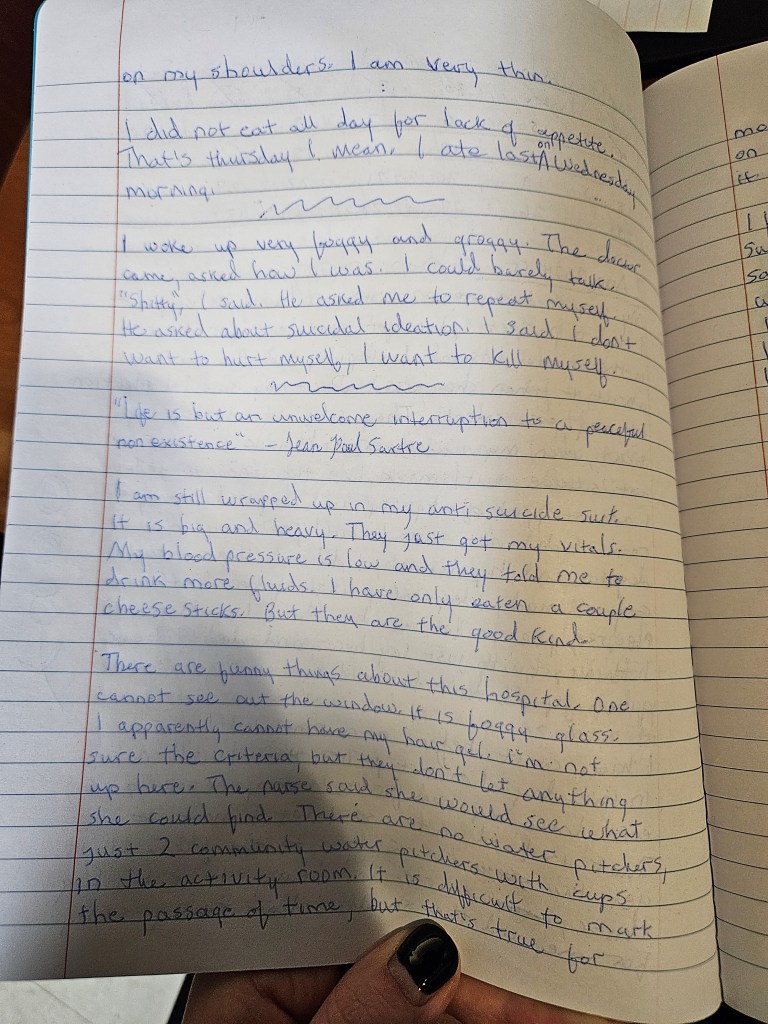 on my shoulders. I am very thin.
:
I did not eat all day for lack of appetite.
That's thursday I mean. I ate last on Wednesday
morning.
I woke up very foggy and groggy. The doctor
came, asked how I was. I could barely talk.
"Shitty", I said. He asked me to repeat myself.
He asked about suicidal ideation. I said I don't
want to hurt myself, I want to kill myself.
"Life is but an unwelcome interruption to a peaceful
non existence" - Jean Paul Sartre
I am still wrapped up in my anti suicide suit.
It is big and heavy. They just got my vitals.
My blood pressure is low and they told me to
drink more fluids. I have only eaten a couple
cheese sticks. But they are the good kind.
There are funny things about this hospital. One
cannot see out the window. It is foggy glass.
I apparently cannot have my hair gel. i'm not
sure the criteria, but they don't let anything
up here. The nurse said she would see what
she could find. There are no water pitchers,
just 2 community water pitchers with cups
in the activity room. It is difficult to mark
the passage of time, but that's true for
mo
on
it